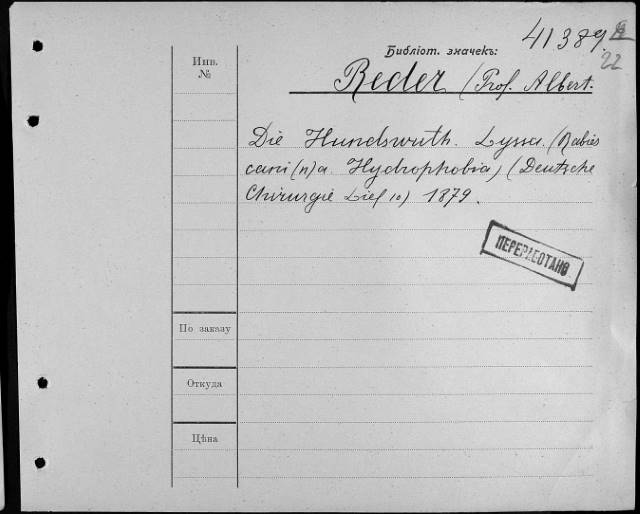 41389
22
Библіот. значекъ:
Инв.
№
Reder (Prof. Albert.
Die Hundswuth. Lyssa. (Rabies
cani(n)a. Hydrophobia) (Deutsche
Chirurgie Lief 10) 1879.
ПЕРЕРАБОТАНО
По заказу
Откуда
Цѣна